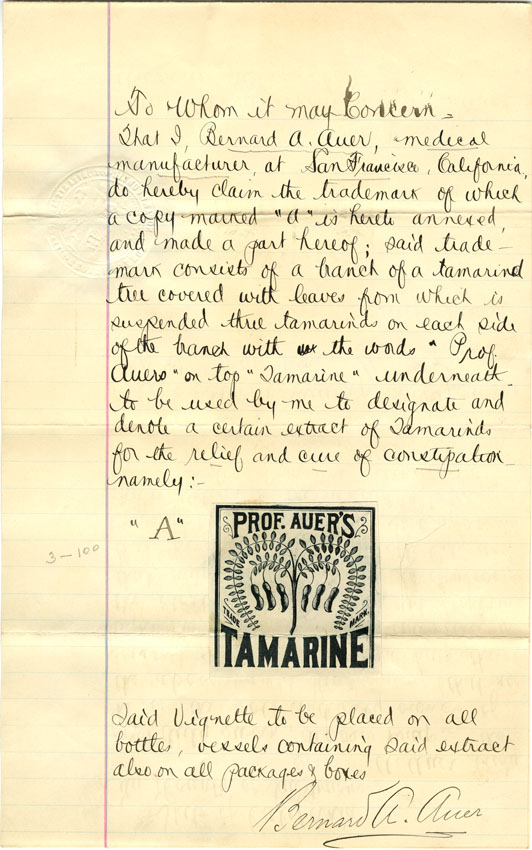 To Whom it may Concern =
That I, Bernard A. Auer, medical
manufacturer, at San Francisco, California,
do hereby claim the trademark of which
a copy marked "A" is hereto annexed,
and made a part hereof; said trade-
mark consists of a branch of a tamarind
tree covered with leaves from which is
suspended three tamarinds on each side
of the branch with the words "Prof.
Auers" on top "Tamarine" underneath
to be used by me to designate and
denote a certain extract of Tamarinds
for the relief and cure of constipation
namely:-
"A"
3-100
PROF. AUER'S
TRADE MARK.
TAMARINE
Said Vignette to be placed on all
bottles, vessels containing said extract
also on all packages & boxes
Bernard A. Auer